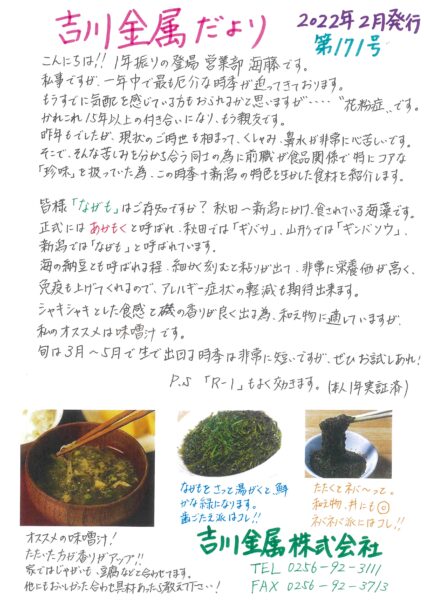 吉川金属だより
2022年2月発行
第171号
こんにちは!! 1年振りの登場 営業部 海藤です。
私事ですが、一年中で最も厄介な時季が迫ってきております。
もうすでに気配を感じている方もおられるかと思いますが・・・・"花粉症"です。
かれこれ15年以上の付き合いになり、もう親友です。
昨年もでしたが、現状のご時世も相まって、くしゃみ、鼻水が非常に心苦しいです。
そこで、そんな苦しみを分かち合う同士の為に前職が食品関係で特にコアな
「珍味」を扱っていた為、この時季+新潟の特色を生かした食材を紹介します。
皆様「ながも」はご存知ですか? 秋田〜新潟にかけ、食されている海藻です。
正式には あかもくと呼ばれ、秋田では「ギバサ」、山形では「ギンバソウ」、
新潟では「ながも」と呼ばれています。
海の納豆とも呼ばれる程、細かく刻むと粘りが出て、非常に栄養価が高く、
免疫も上げてくれるので、アレルギー症状の軽減も期待出来ます。
シャキシャキとした食感と磯の香りが良く出る為、和え物に適していますが、
私のオススメは味噌汁です。
旬は3月〜5月で生で出回る時季は非常に短いですが、ぜひお試しあれ!
P.S 「R-1」もよく効きます。(本人1年実証済)
ながもをさっと湯がくと、鮮
かな緑になります。
歯ごたえ派はコレ!!
たたくとネバ〜って。
和え物、丼にも◎
ネバネバ派にはコレ!!
オススメの味噌汁!
たたいた方が香りがアップ!!
家ではじゃがいも、豆腐などと合わせてます。
他にもおいしかった合わせ具材あったら教えて下さい!
吉川金属株式会社
TEL 0256-92-3111
FAX 0256-92-3713